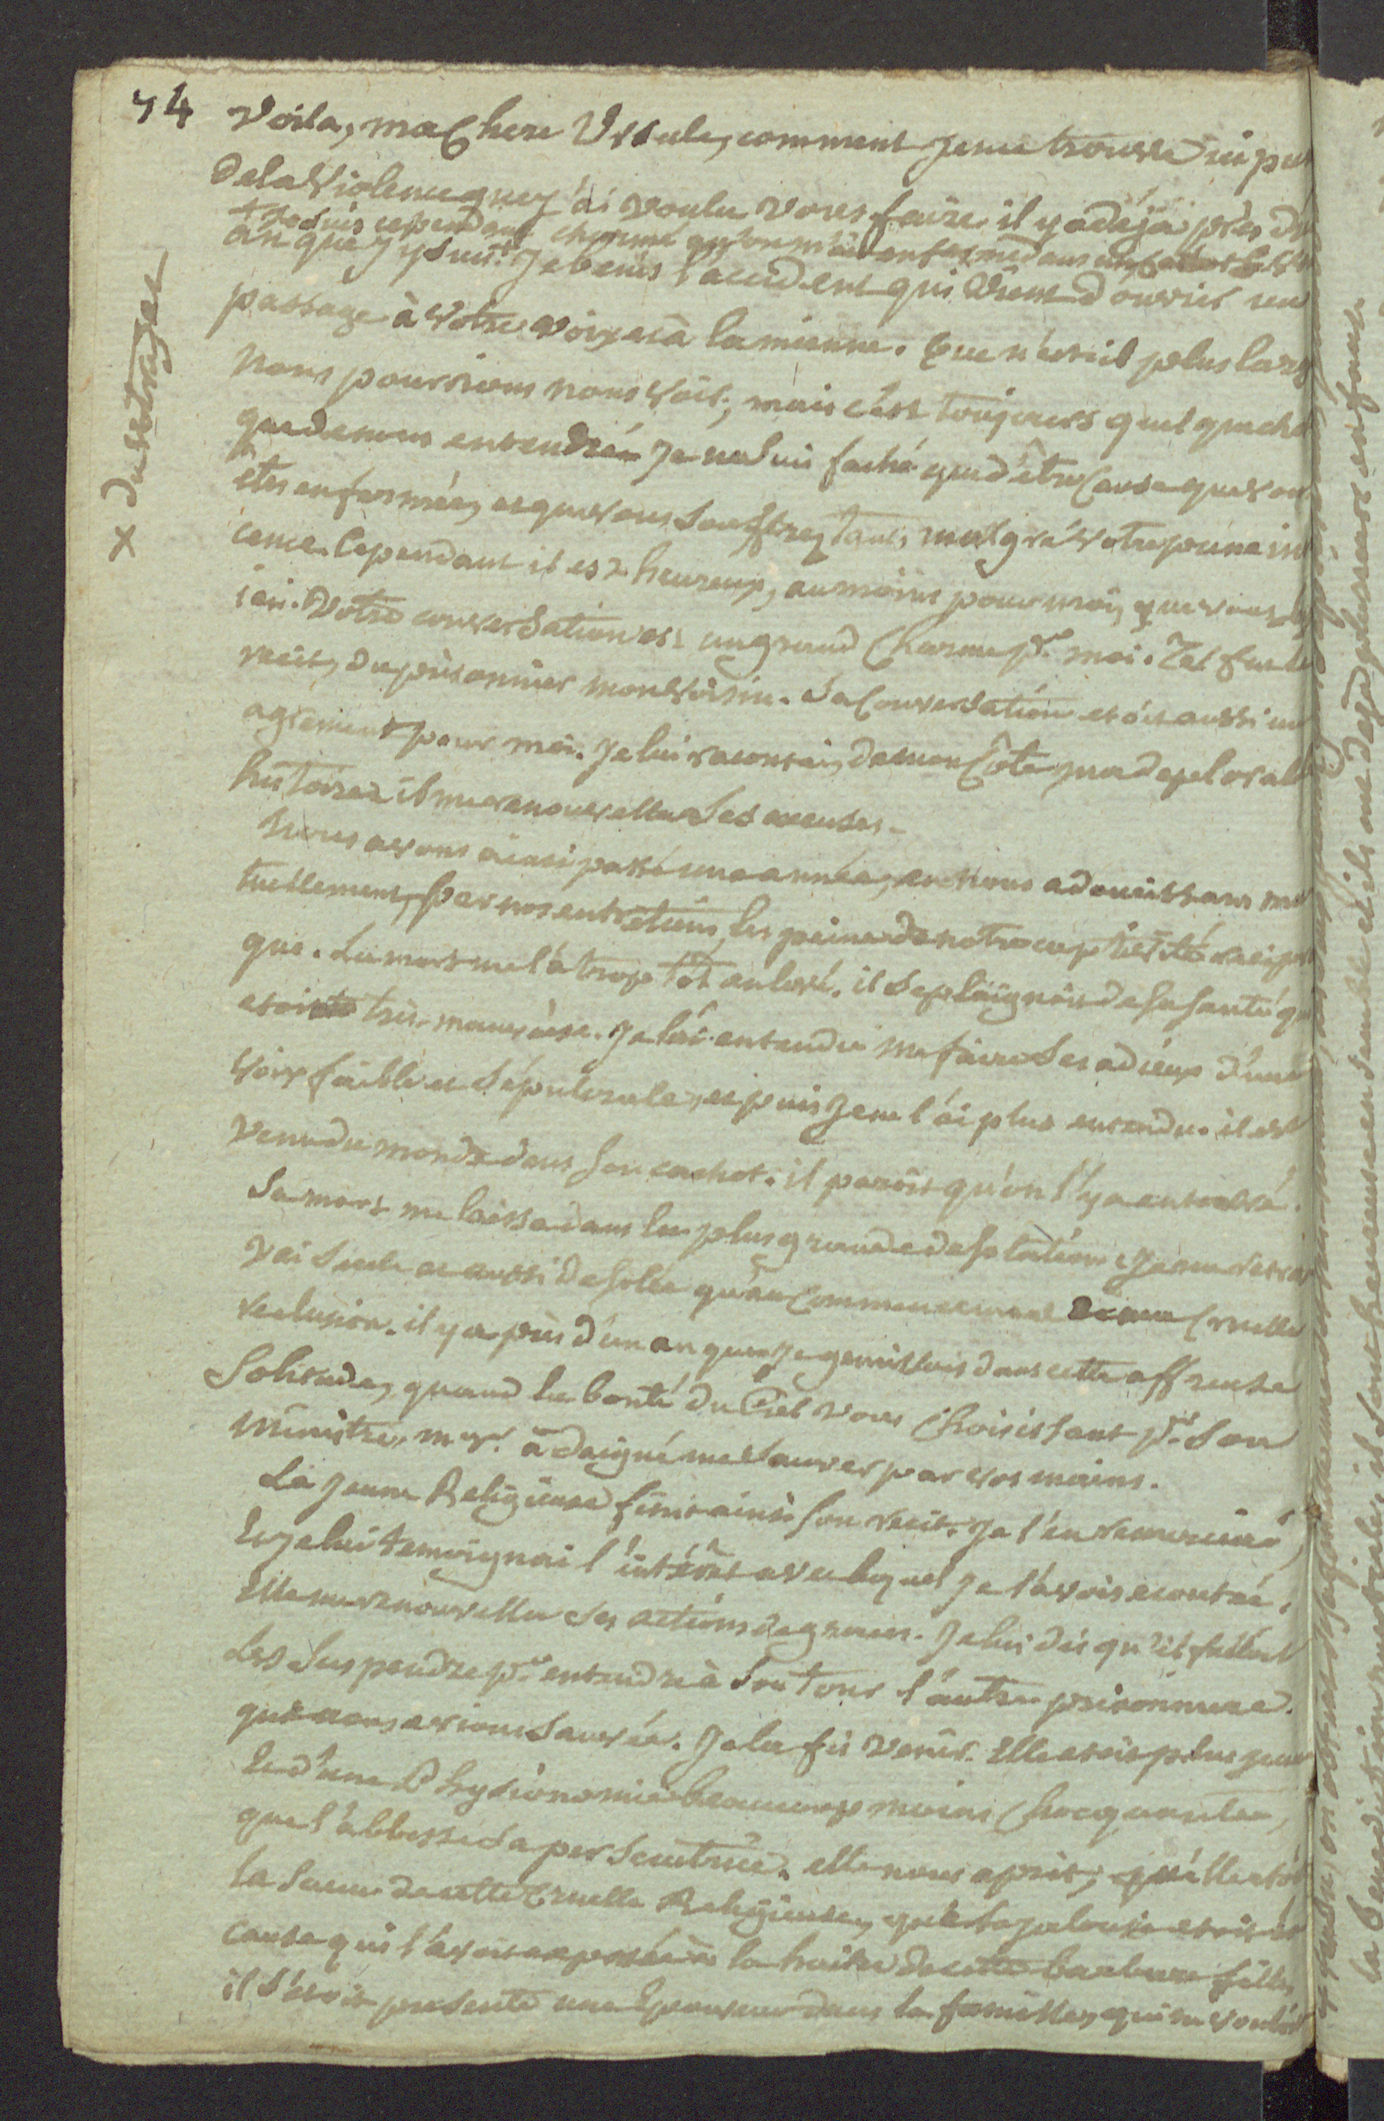 74
Voila, ma Chere Ursule, comment je me trouve ici pu
de la violence que j'ai voulu vous faire il y a déja près d'
+ Je suis cependant charmé qu'on m'ait enfermé dans
an que j'y suis. + Je benis l'accident qui vient d'ouvrir un
passage à votre voix et à la mienne. Que n'est il plus larg
Nous pourrions nous voir; mais c'est toujours quelque cho
que de nous entendre. Je ne suis faché que d'être Cause que vou
êtes enfermée, et que vous souffrez tant, malgré votre jeune in
cence. Cependant il est heureux, au moins pour moi, que vous
ici. Votre conversation est un grand Charme pr. moi. Tel fut le
recit, du prisonnier mon voisin. Sa Conversation etoit aussi un
agrement pour moi. Je lui racontai, de mon Côté, ma deplorab
histoire; il me renouvella ses excuses.
Nous avons ainsi passé une année, en nous adoucissant mu
tuellement, par nos entretiens, les peines de notre captivité recipro
que. La mort me l'a trop tôt enlevé. il se plaignoit de sa santé qu
etoit très mauvaise. Je l'ai entendu me faire ses adieux d'une
voix faible et sépulcrale, et puis je ne l'ai plus entendu. il est
venu du monde dans son cachot. il paroit qu'on l'y a enterré.
Sa mort me laissa dans la plus grande desolation. Je me retrou
vai seule et aussi desolée qu'au Commencement de ma Cruelle
reclusion. il y a près d'un an que je gemissois dans cette affreuse
solitude, quand la bonté du Ciel vous Choisissant pr. son
Ministre, mr. a daigné me sauver par vos mains.
La jeune Religieuse finit ainsi son recit. Je l'en remerciai,
Et je lui temoignai l'intérêt avec lequel je l'avois ecoutée.
Elle me renouvella ses actions de graces. Je lui dis qu'il falloit
les suspendre pr. entendre à son tour l'autre prisonniere.
que nous avions sauvée. Je la fis venir. Elle etoit plus jeun
Et d'une Physionomie beaucoup moins Chocquante,
que l'abbesse sa persecutrice. elle nous aprit, qu'elle etoit
la Sœur de cette Cruelle Religieuse, que la jalousie etoit la
cause qui l'avoit exposée à la haine de cette barbare fille,
il s'étoit presenté un Epouseur dans la famille, qui ne vouloit
x des otages